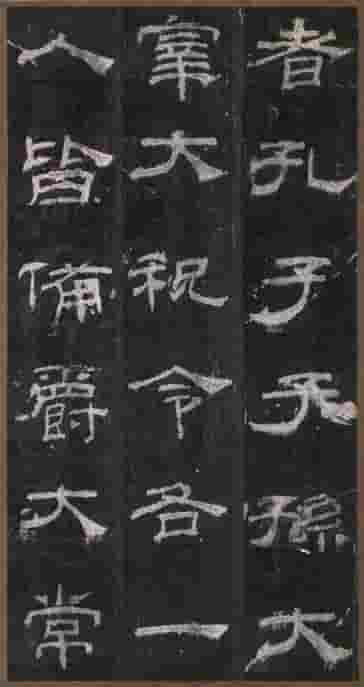 者孔子子孫大
宰大祝令各一
人皆備爵大常